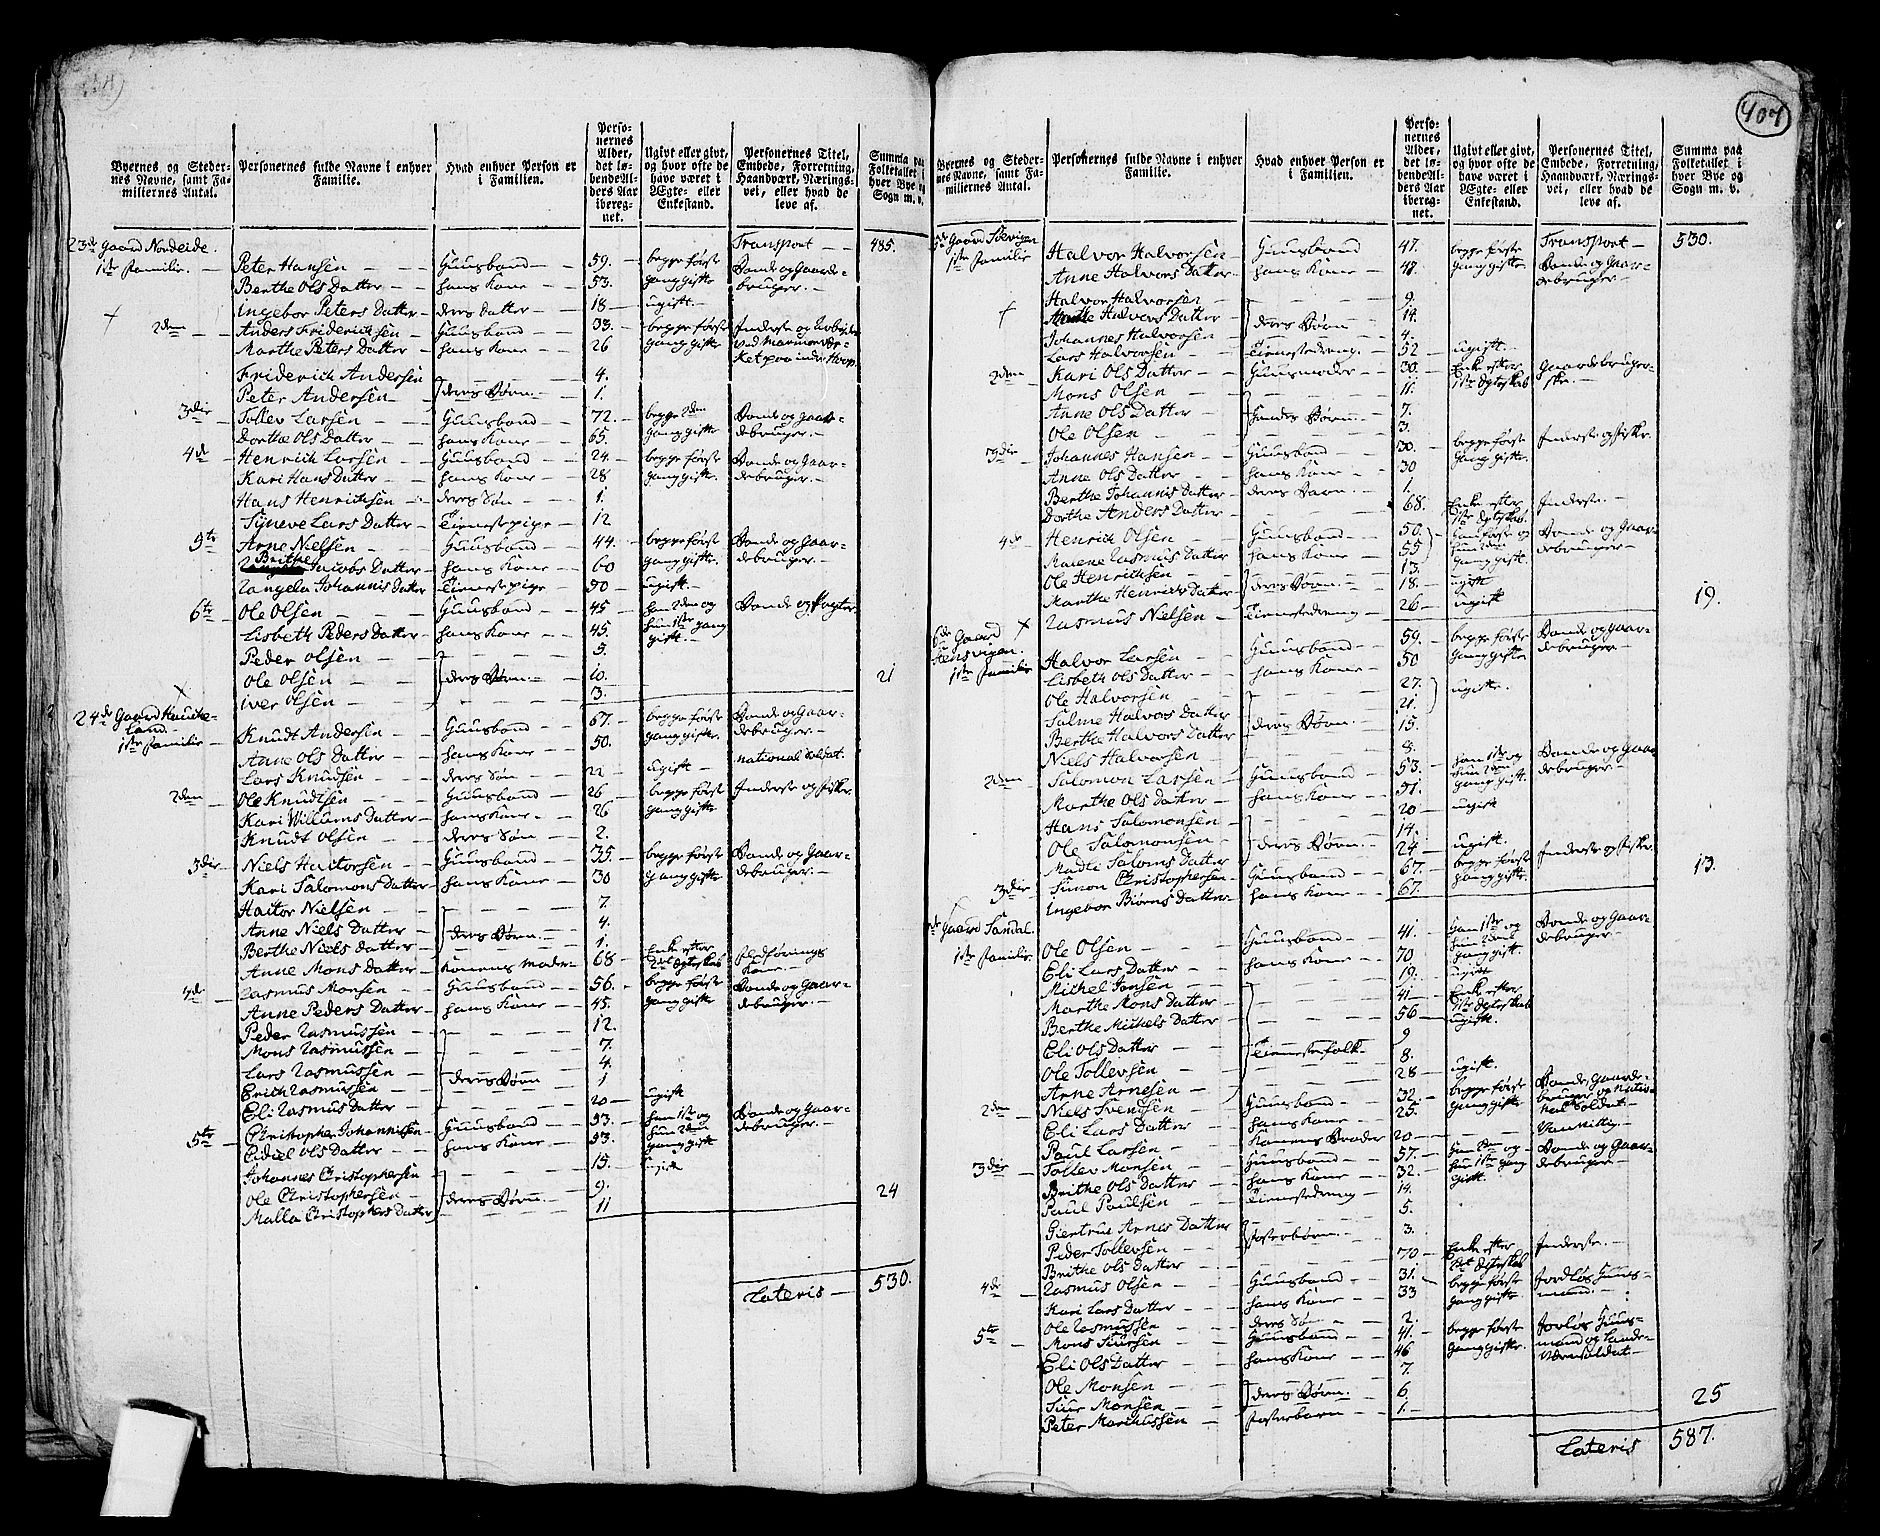 407
Byernes og Steder-
nes Navne, samt Fa-
miliernes Antal.
Personernes fulde Navne i enhver
Familie.
Hvad enhver Person er
i Familien.
Perso-
nernes
Alder,
det lø-
bende Al-
ders Aar
iberegnet.
Ugivt eller givt,
og hvor ofte de
have været i
Ægte- eller
Enkestand.
Personernes Titel,
Embede, Forretning,
Haandværk, Nærings-
vei, eller hvad de
leve af.
Summa paa
Folketallet i
hver Bye og
Sogn m. v.
Transport — 485.
23de Gaard Nordeide.
1ste Familie. — Peter Hansen — Huusbond — 59. — begge første Bonde og Gaarde-
Berthe Ols Datter — hans Kone — 53. gang gifte bruger. —
Ingebor Peters Datter — deres Datter — 18 — ugift. —
2den — Anders Friderichsen — Huusbond — 33. — begge første Inderste og Arbeider
Marthe Peters Datter — hans Kone — 26 gang gifte ved Marmor Vær-
ket paa inder Hop.
Friderich Andersen 4.
Peter Andersen — deres Børn. — 1.
3die — Tollev Larsen — Huusbond — 72. — begge 2den Bonde og Gaar-
Dorthe Ols Datter — hans Kone — 65. gang gifte debruger. —
4de — Henrich Larsen — Huusbond — 24. — begge første Bonde og Gaar-
Kari Hans Datter — hans Kone — 28 gang gifte. debruger. —
Hans Henrichsen — deres Søn — 1.
Synneve Lars Datter — Tienestepige — 12
5te — Arne Nielsen — Huusbond — 44. — begge første Bonde og Gaar-
Brithe Jacobs Datter — hans Kone — 60 gang gifte. debruger. —
Rangela Johannis Datter Tienestepige 50 — ugift. —
6te — Ole Olsen — Huusbond — 45 — han 2den og Bonde og Fogter
Lisbeth Peders Datter — hans Kone — 45. hun 1ste gang
gift. —
Peder Olsen — 5.
Ole Olsen — deres Børn. — 10.
Iver Olsen — 3. 21
24de Gaard Knucke-
land.
1ste Familie — Knudt Andersen — Huusbond — 67. — begge første Bonde og Gaar-
Anne Ols Datter — hans Kone — 50. gang gifte. debruger. —
Lars Knudsen — deres Søn — 22 — ugift — national Soldat.
2den — Ole Knudtsen — Huusbond — 26 — begge første Inderste og Fisker
Kari Willums Datter — hans Kone. — 26 gang gifte
Knudt Olsen — deres Søn — 2.
3die — Niels Haitorsen — Huusbond — 35. — begge første Bonde og Gaar-
Kari Salomons Datter hans Kone — 30 gang gifte debruger. —
Haitor Nielsen — 7.
Anne Niels Datter — deres Børn. — 4.
Berthe Niels Datter — 1.
Anne Mons Datter — Konens Moder — 68 — Enke efter 2det Egteskab Fledførings Kone. —
4de — Rasmus Monsen — Huusbond — 56. — begge første Bonde og Gaar-
Anne Peders Datter — hans Kone — 45. gang gifte debruger. —
Peder Rasmussen — 12.
Mons Rasmussen — 7.
Lars Rasmussen — 4.
Erich Rasmussen — deres Børn 1
Eli Rasmus Datter — 20 — ugift
5te — Christopher Johannissen — Huusbond — 53. — han 1ste og Bonde og Gaar-
Eidiel Ols Datter — hans Kone — 53. hun 2den gang gift debruger. —
Johannes Christophersen — 15. — ugift
Ole Christophersen — deres Børn. 9.
Malla Christophers Datter 11 24
Lateris — 530.
Byernes og Steder-
nes Navne, samt Fa-
miliernes Antal.
Personernes fulde Navne i enhver
Familie.
Hvad enhver Person er
i Familien.
Perso-
nernes
Alder,
det lø-
bende Al-
ders Aar
iberegnet.
Ugivt eller givt,
og hvor ofte de
have været i
Ægte- eller
Enkestand.
Personernes Titel,
Embede, Forretning,
Haandværk, Nærings-
vei, eller hvad de
leve af.
Summa paa
Folketallet i
hver Bye og
Sogn m. v.
Transport — 530.
Gaard Søevigen
1ste Familie Halvor Halvorsen — Huusbond 47. begge første Bonde og Gaar-
Anne Halvors Datter — hans Kone — 47. gang gifte debruger. —
Halvor Halvorsen — 9.
Marthe Halvors Datter — deres Børn 14.
Johannes Halvorsen 4.
Lars Halvorsen — Tienestedreng. — 52 — ugift. —
2den — Kari Ols Datter — Huusmoder — 30. — Enke efter 1ste Egteskab Gaardebruger-
ske. —
Mons Olsen 11.
Anne Ols Datter — hendes Børn — 7.
Ole Olsen — 3.
3die — Johannes Hansen — Huusbond — 30. — begge første Inderste og Fisker.
Anne Ols Datter — hans Kone — 30 gang gifte.
Berthe Johannis Datter — deres Barn. — 1.
Dorthe Anders Datter — 68. Enke efter 1ste Egteskab. Inderste. —
4de — Henrich Olsen — Huusbond — 50. han første og Bonde og Gaar-
Malene Rasmus Datter hans Kone — 55 hun 2den gang gift. debruger. —
Ole Henrichsen — 13.
Marthe Henrichs Datter deres Børn. — 18. — ugift
Rasmus Nielsen — Tienestedreng — 26 — ugift 19.
6te Gaard
Hensvigen.
1ste Familie Halvor Larsen — Huusbond — 59. — begge første Bonde og Gaar-
Lisbeth Ols Datter — hans Kone — 50 gang gifte debruger —
Ole Halvorsen — 27. ugifte.
Salme Halvors Datter 21.
Berthe Halvors Datter deres Børn. — 15.
Niels Halvorsen — 8.
2den — Salomon Larsen — Huusbond — 53. — han 1ste og Bonde og Gaar-
Marthe Ols Datter — hans Kone — 51. hun 2den gang gift. debruger —
Hans Salomonsen — 20 — ugift
Ole Salomonsen — deres Børn. — 14.
Madli Saloms Datter 24 — ugift.
3die — Simon Christophersen — Huusbond — 67. — begge første Inderste og Fisker.
Ingebor Biørns Datter — hans Kone — 67. gang gifte. 13.
Gaard Sandal.
1ste Familie. Ole Olsen — Huusbond — 41. — han 1ste og Bonde og Gaar-
Eli Lars Datter — hans Kone — 70 hun 2den gang gift. debruger —
Michel Jonsen — 19. — ugift
Marthe Mons Datter — 41 — Enke efter 1ste Egteskab
Berthe Michels Datter — 56 — ugift.
Eli Ols Datter — Tienestefolk — 9
Ole Tollevsen — 8.
Arne Arnesen — 28 — ugift.
2den — Niels Svendsen — Huusbond — 32 — begge første Bonde, Gaarde-
bruger og Natio-
Eli Lars Datter — hans Kone — 25. gang gifte nal Soldat. —
Paul Larsen — Konens Broder 20 — Vanvittig. —
3die — Tollev Monsen — Huusbond — 57. — han 2den og Bonde og Gaar-
Brithe Ols Datter — hans Kone — 32. — hun 1ste gang gift. debruger —
Paul Paulsen — Tienestedreng — 14.
Giertrus Arnes Datter 5.
Peder Tollevsen — Fosterbørn. — 3.
Brithe Ols Datter — 70 — Enke efter 1ste Egteskab Inderste. —
4de — Rasmus Olsen — Huusbond — 31. — begge første Jordløs Huus-
Kari Lars Datter — hans Kone — 33 gang gifte mand. —
Ole Rasmussen — deres Søn — 2.
5te — Mons Siursen — Huusbond — 41. — begge første Jorløs Huus-
Eli Ols Datter — hans Kone — 46 gang gifte. mand og Lande-
værnsoldat. —
Ole Monsen — 7.
Siur Monsen — deres Børn. — 6.
Peter Marcussen — Fosterbarn — 1. — 25
Lateris 587.